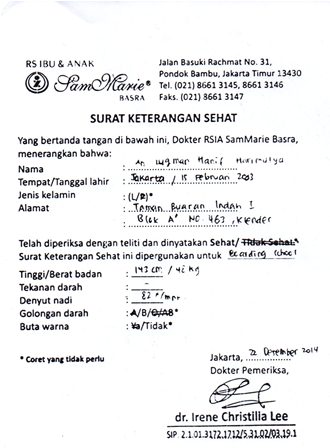 RS IBU & ANAK
SamMarie®
BASRA
Jalan Basuki Rachmat No. 31,
Pondok Bambu, Jakarta Timur 13430
Tel. (021) 8661 3145, 8661 3146
Faks. (021) 8661 3147
SURAT KETERANGAN SEHAT
Yang bertanda tangan di bawah ini, Dokter RSIA SamMarie Basra,
menerangkan bahwa:
Nama : An Luqman Hanif
Tempat/Tanggal lahir : Jakarta / 15 Februari 2003
Jenis kelamin : (L/P)*
Alamat : Taman Buaran Indah I
Blok A' NO. 463, Klender
Telah diperiksa dengan teliti dan dinyatakan Sehat/ Tidak Sehat.*
Surat Keterangan Sehat ini dipergunakan untuk Boarding School
Tinggi/Berat badan : 143 cm / 42 kg
Tekanan darah : -
Denyut nadi : 82 x/mnt
Golongan darah : A/B/O/AB*
Buta warna : Ya/Tidak*
* Coret yang tidak perlu
Jakarta, 22 Desember 2014
Dokter Pemeriksa,
dr. Irene Christilia Lee
SIP: 2.1.01.3172.1712/5.31.02/03.19.1